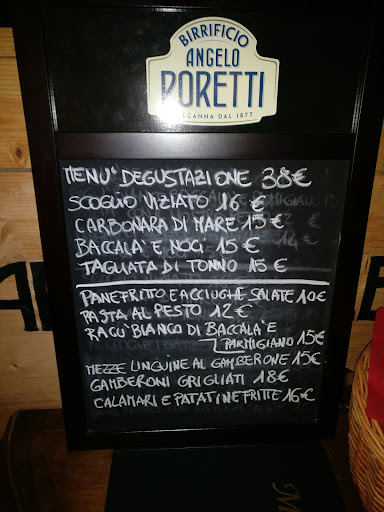 BIRRIFICIO
ANGELO
PORETTI
MENU' DEGUSTAZIONE 38€
SCOGLIO VIZIATO 16 €
CARBONARA DI MARE 15€
BACCALA' E NOCI 15€
TAGLIATA DI TONNO 15€
PANE FRITTO E ACCIUGHE SALATE 10€
PASTA AL PESTO 12€
RAGU' BIANCO DI BACCALA' E
PARMIGIANO 15€
MEZZE LINGUINE AL GAMBERONE 15€
GAMBERONI GRIGLIATI 18€
CALAMARI E PATATINE FRITTE 16€